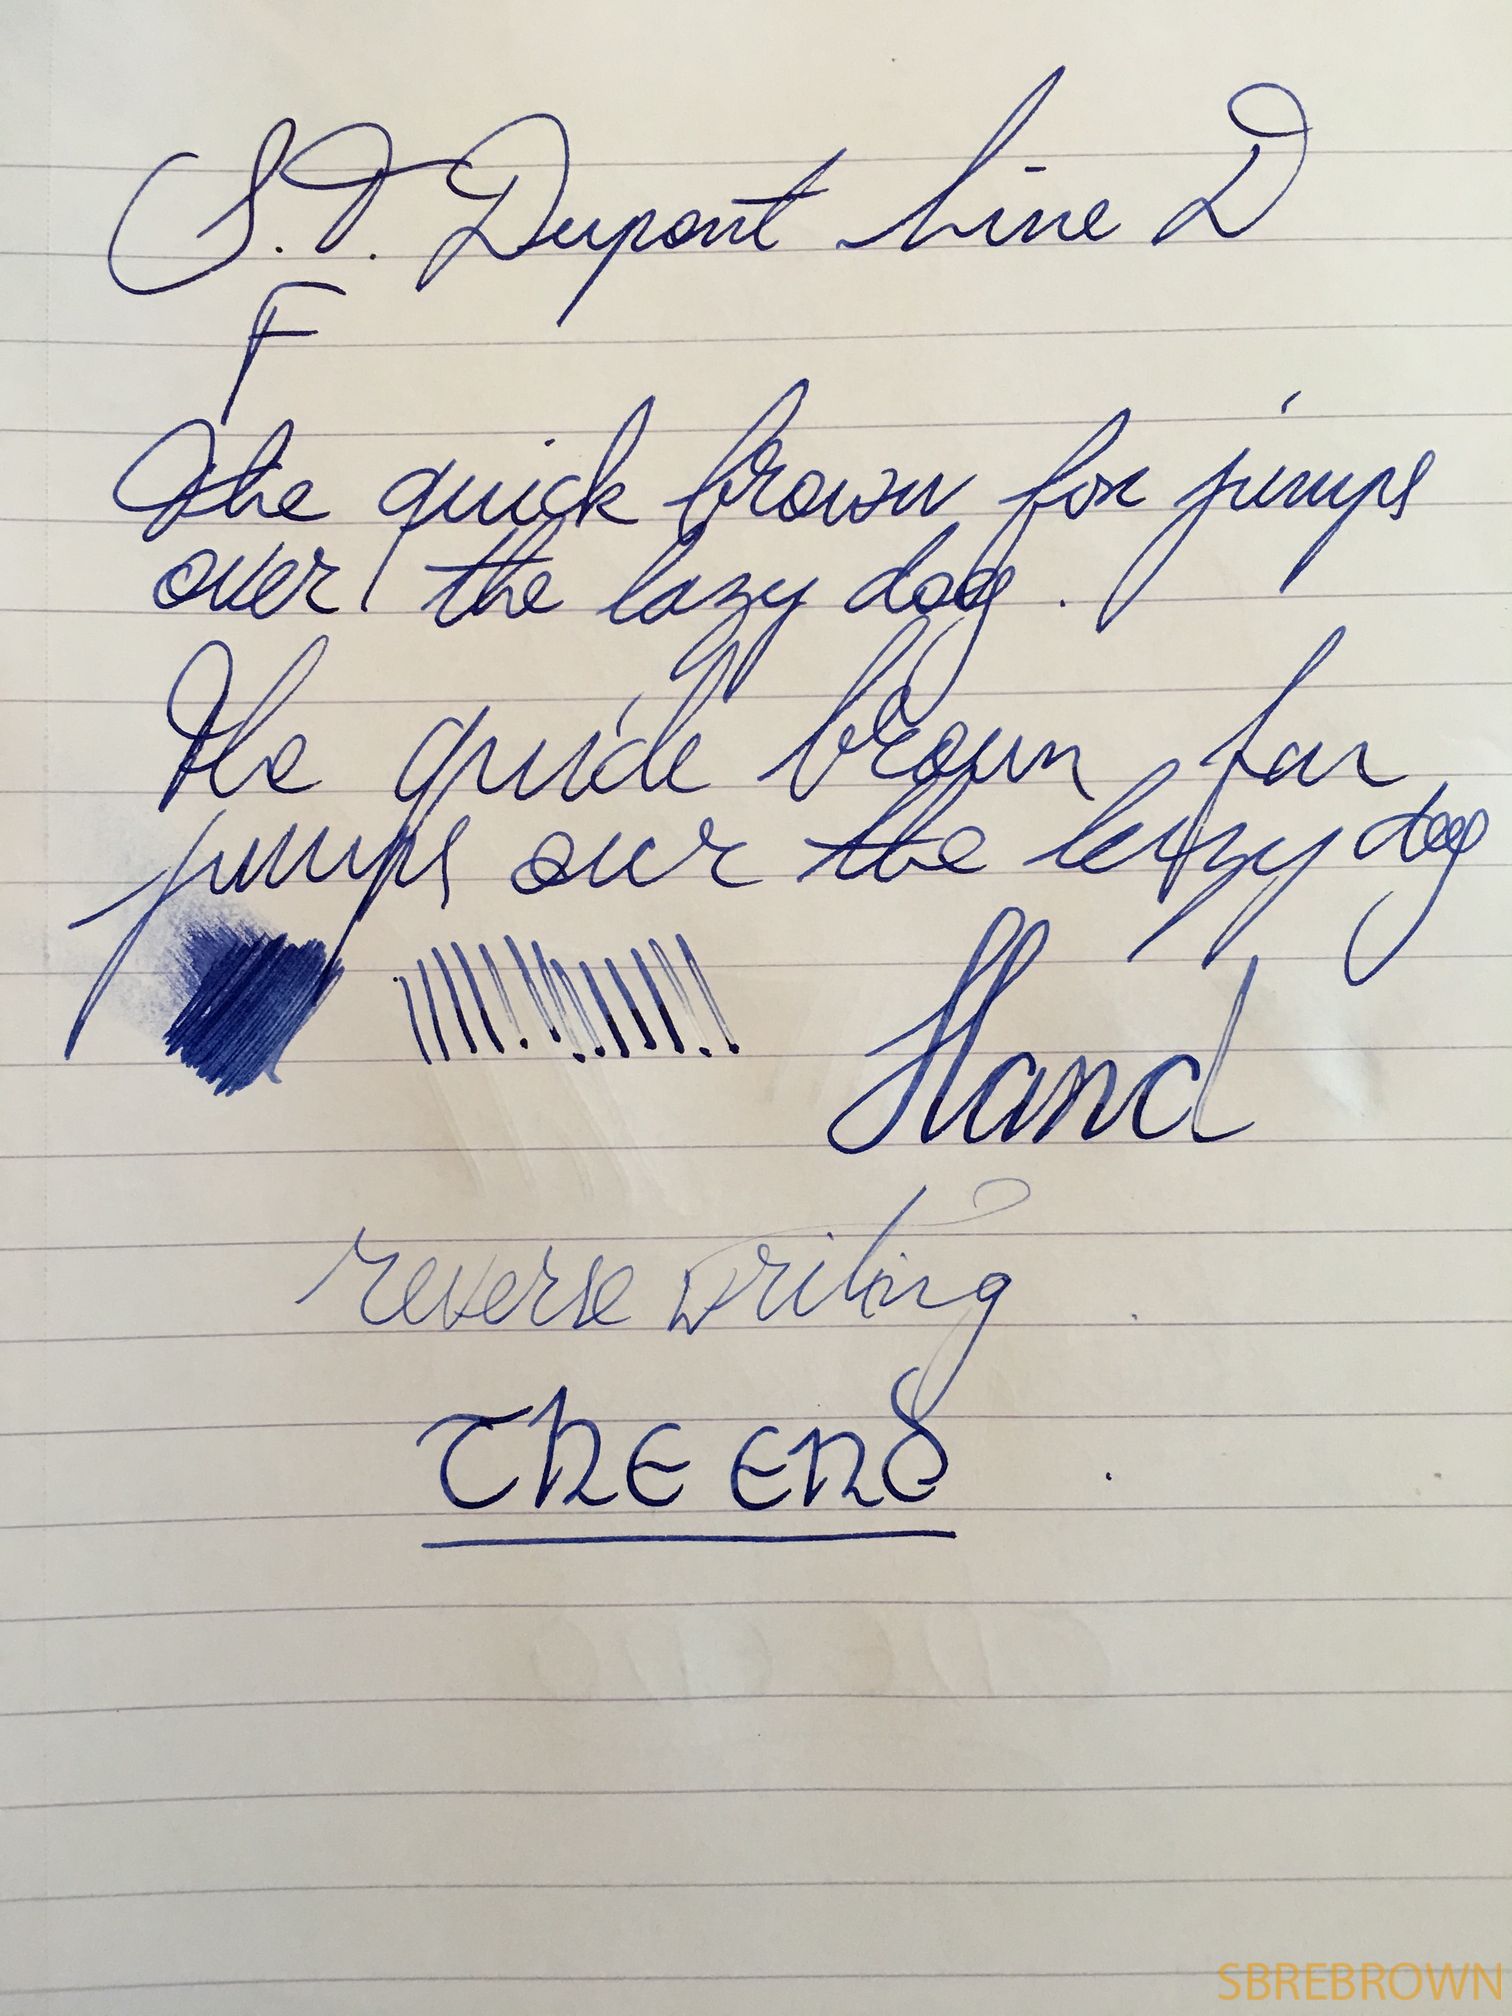 S.T. Dupont Line D
F
The quick brown fox jumps
over the lazy dog.
The quick brown fox
jumps over the lazy dog
Hand
reverse writing
The End
SBREBROWN